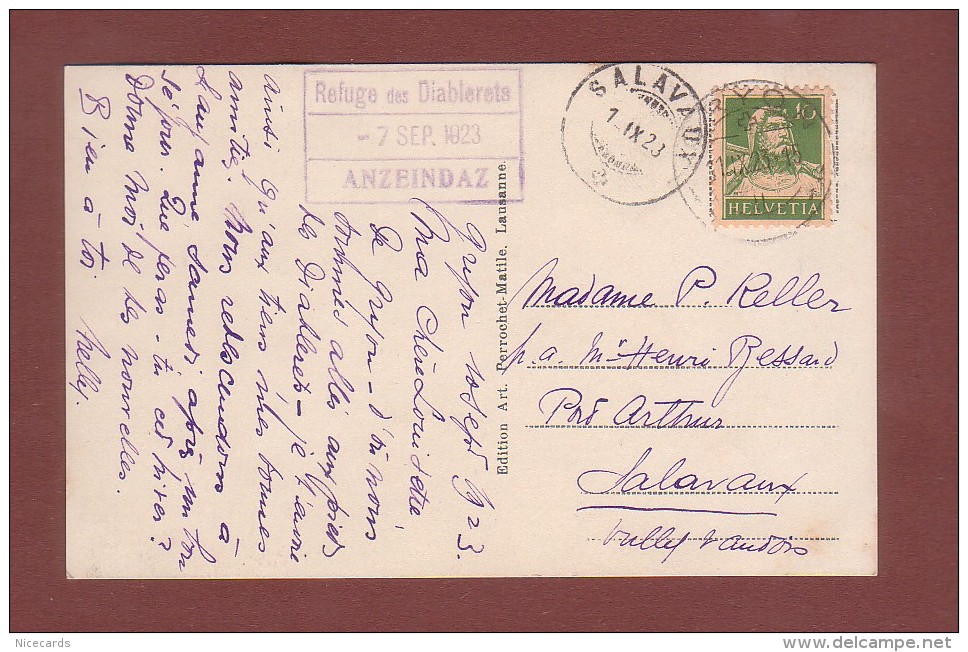 Refuge des Diablerets
- 7 SEP. 1923
ANZEINDAZ
SALAVAUX
1. IX 23
10
HELVETIA
Gryon 10 Sept 1923.
Ma chère Louisette
De Gryon - d'où nous
sommes allés aux pieds
des Diablerets - je t'envoie
ainsi qu'aux tiens mes bonnes
amitiés. Nous redescendons à
Lausanne samedi après un bon
séjour. Que feras-tu cet hiver?
Donne moi de tes nouvelles.
Bien à toi Nelly.
Edition Art. Perrochet-Matile. Lausanne.
Madame P. Keller
p.a. Mr Henri Bessard
Port Arthur
Salavaux
Vully Vaudois
Nicecards
www.delcampe.net